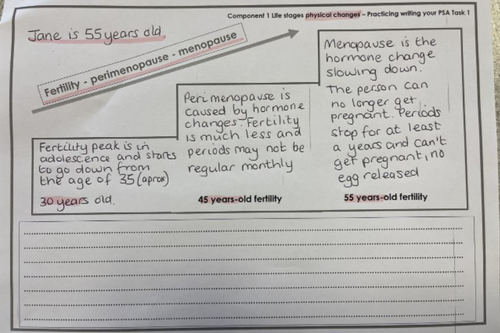 Component 1 Life stages physical changes – Practicing writing your PSA Task 1
Jane is 55 years old.
Fertility - perimenopause - menopause
Fertility peak is in
adolescence and starts
to go down from
the age of 35 (aprox)
30 years old.
Perimenopause is
caused by hormone
changes. Fertility
is much less and
periods may not be
regular monthly
45 years-old fertility
Menopause is the
hormone change
slowing down.
The person can
no longer get
pregnant. Periods
stop for at least
a years and can't
get pregnant, no
egg released
55 years-old fertility